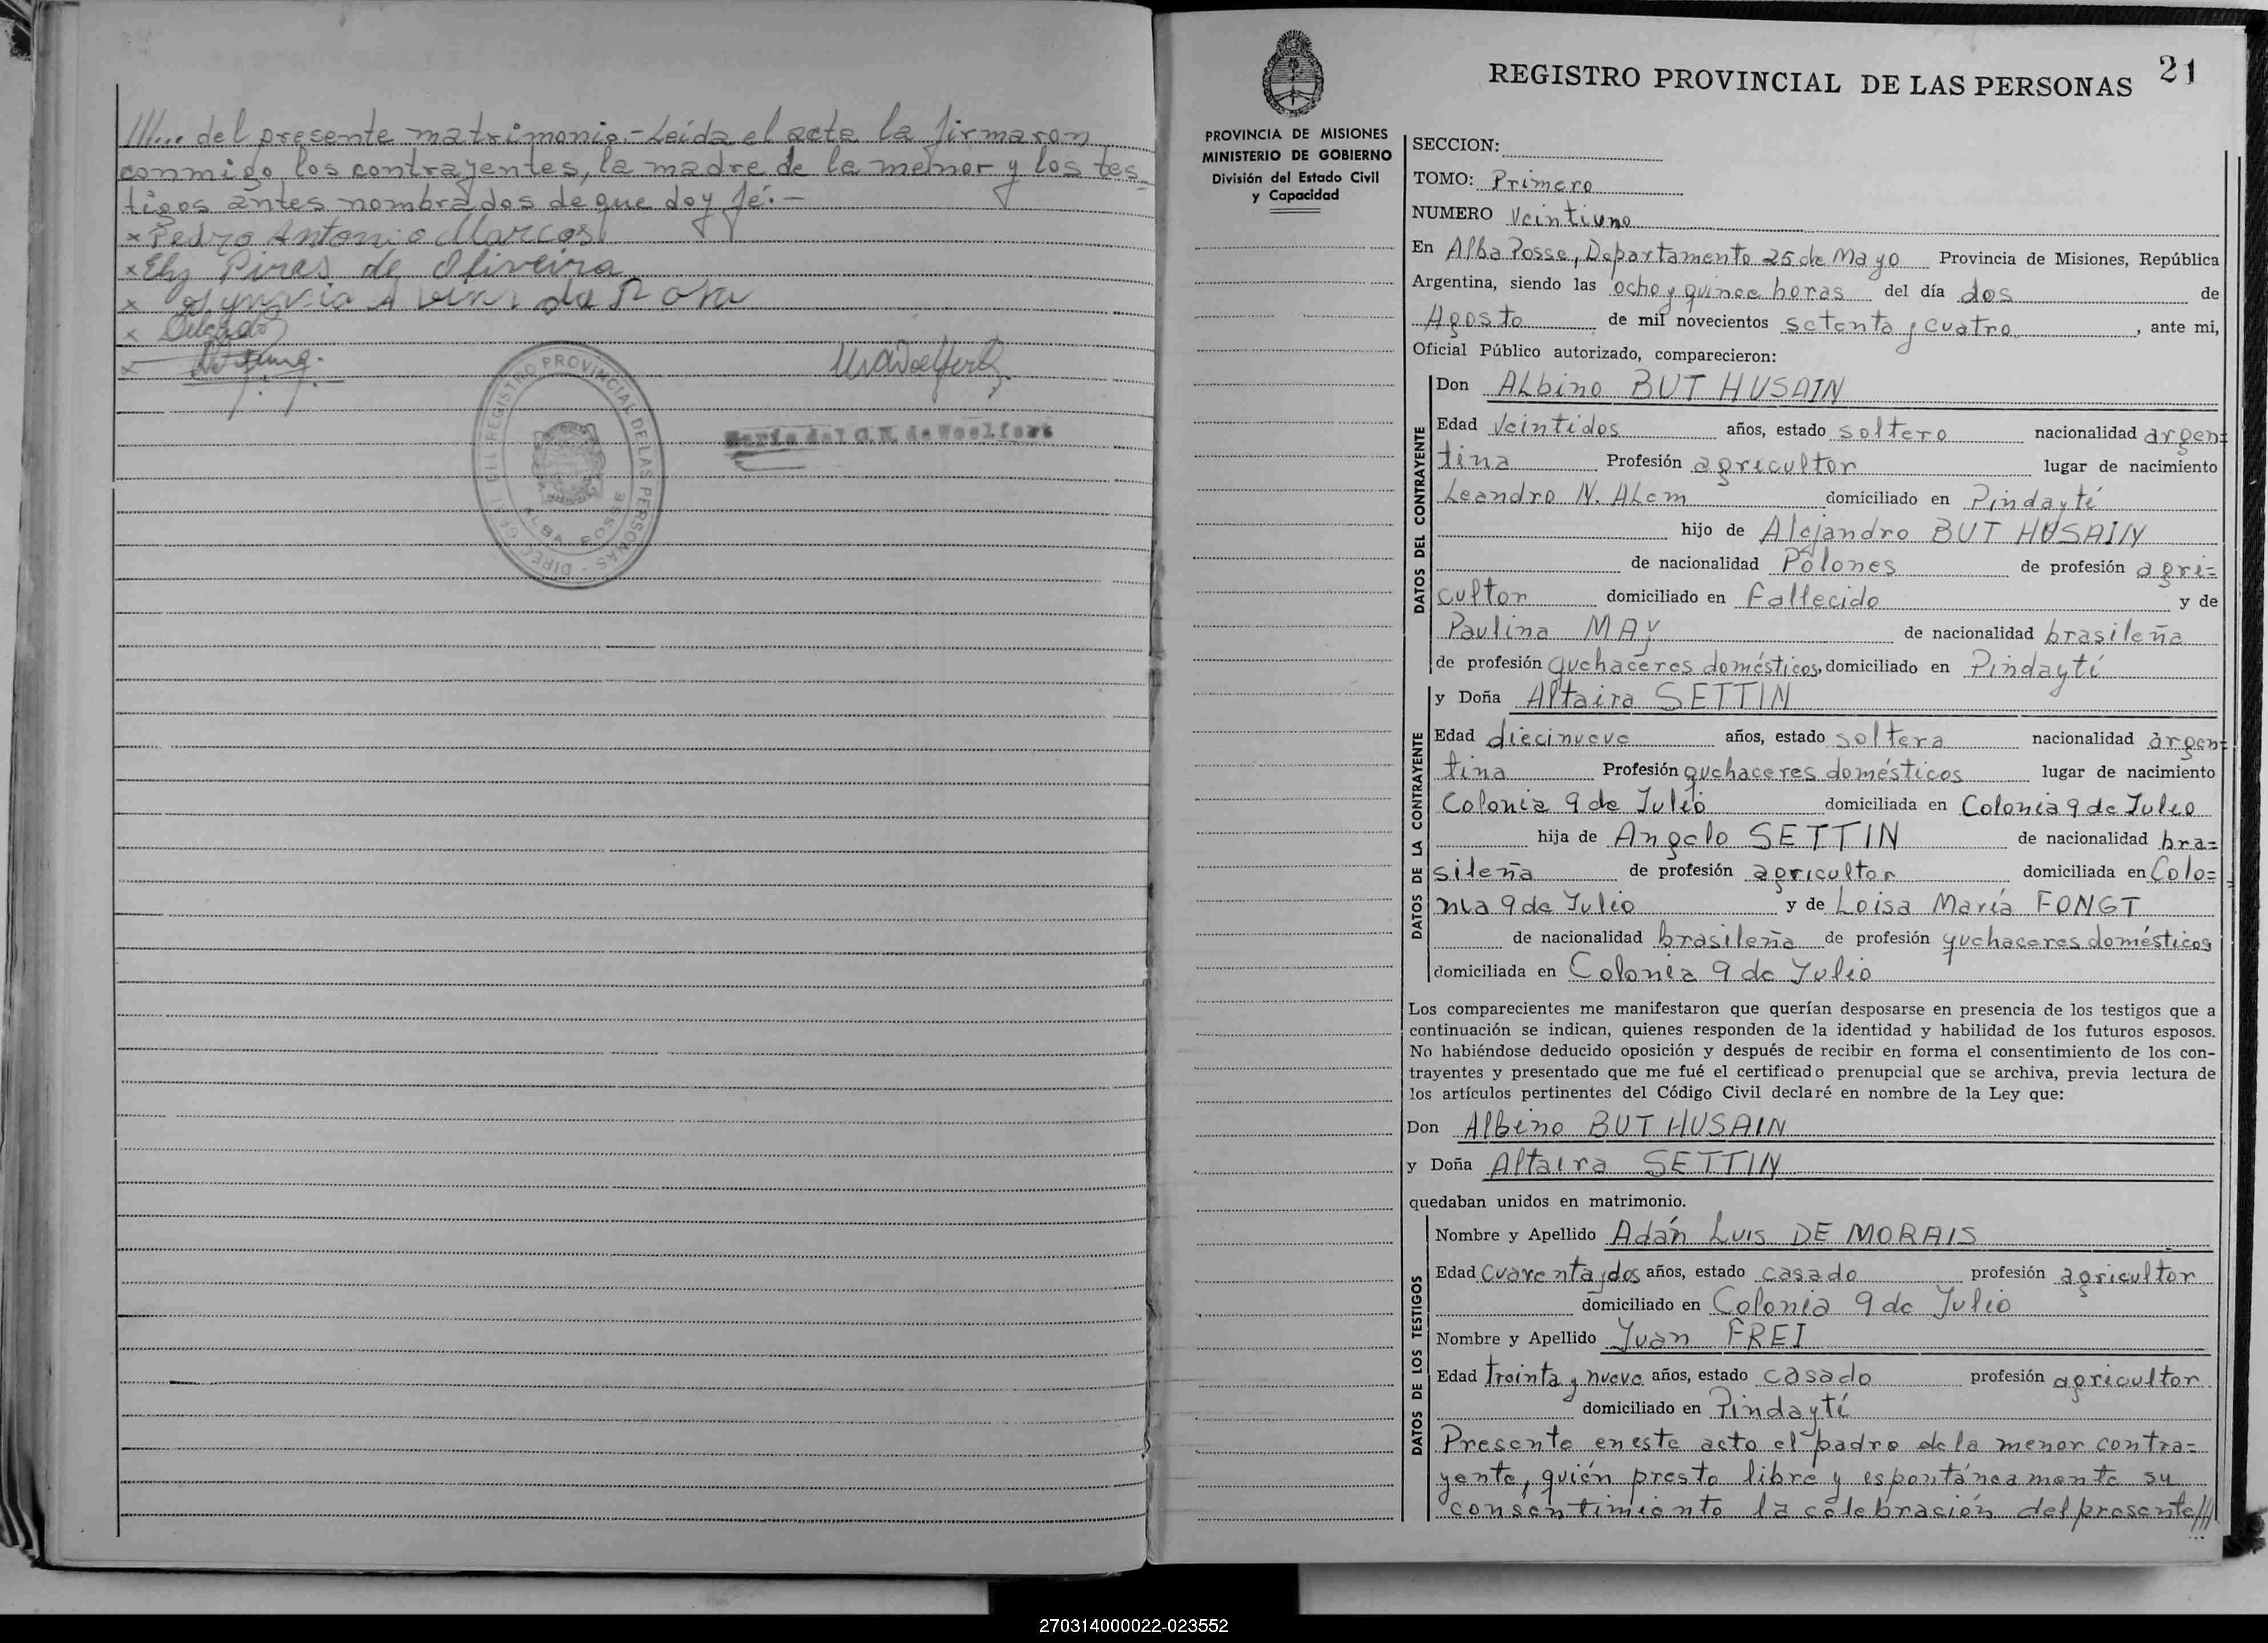 ///... del presente matrimonio.- Leída el acta la firmaron
conmigo los contrayentes, la madre de la menor y los tes-
tigos antes nombrados de que doy fé.-
x Pedro Antonio Marcos
x Ely Piras de Oliveira
x
x Delgado
x
DIREC. GRAL. DEL REGISTRO PROVINCIAL DE LAS PERSONAS -
ALBA POSSE
María del C.N. de Woelfert
REGISTRO PROVINCIAL DE LAS PERSONAS 21
PROVINCIA DE MISIONES
MINISTERIO DE GOBIERNO
División del Estado Civil
y Capacidad
SECCION:
TOMO: Primero
NUMERO Veintiuno
En Alba Posse, Departamento 25 de Mayo Provincia de Misiones, República
Argentina, siendo las ocho y quince horas del día dos de
Agosto de mil novecientos setenta y cuatro, ante mi,
Oficial Público autorizado, comparecieron:
DATOS DEL CONTRAYENTE
Don Albino BUT HUSAIN
Edad Veintidos años, estado soltero nacionalidad argen=
tina Profesión agricultor lugar de nacimiento
Leandro N. Alem domiciliado en Pindayté
hijo de Alejandro BUT HUSAIN
de nacionalidad Polones de profesión agri=
cultor domiciliado en Fallecido y de
Paulina MAY de nacionalidad brasileña
de profesión quehaceres domésticos, domiciliado en Pindaytí
DATOS DE LA CONTRAYENTE
y Doña Altaira SETTIN
Edad diecinueve años, estado soltera nacionalidad argen=
tina Profesión quehaceres domésticos lugar de nacimiento
Colonia 9 de Julio domiciliada en Colonia 9 de Julio
hija de Angelo SETTIN de nacionalidad bra=
sileña de profesión agricultor domiciliada en Colo=
nia 9 de Julio y de Loisa María FONGT
de nacionalidad brasileña de profesión quehaceres domésticos
domiciliada en Colonia 9 de Julio
Los comparecientes me manifestaron que querían desposarse en presencia de los testigos que a
continuación se indican, quienes responden de la identidad y habilidad de los futuros esposos.
No habiéndose deducido oposición y después de recibir en forma el consentimiento de los con-
trayentes y presentado que me fué el certificado prenupcial que se archiva, previa lectura de
los artículos pertinentes del Código Civil declaré en nombre de la Ley que:
Don Albino BUT HUSAIN
y Doña Altaira SETTIN
quedaban unidos en matrimonio.
DATOS DE LOS TESTIGOS
Nombre y Apellido Adán Luis DE MORAIS
Edad Cuarenta y dos años, estado casado profesión agricultor
domiciliado en Colonia 9 de Julio
Nombre y Apellido Juan FREI
Edad treinta y nueve años, estado casado profesión agricultor
domiciliado en Pindaytí
Presente en este acto el padre de la menor contra=
yente, quién presto libre y espontáneamente su
consentimiento la celebración del presente///
...
270314000022-023552